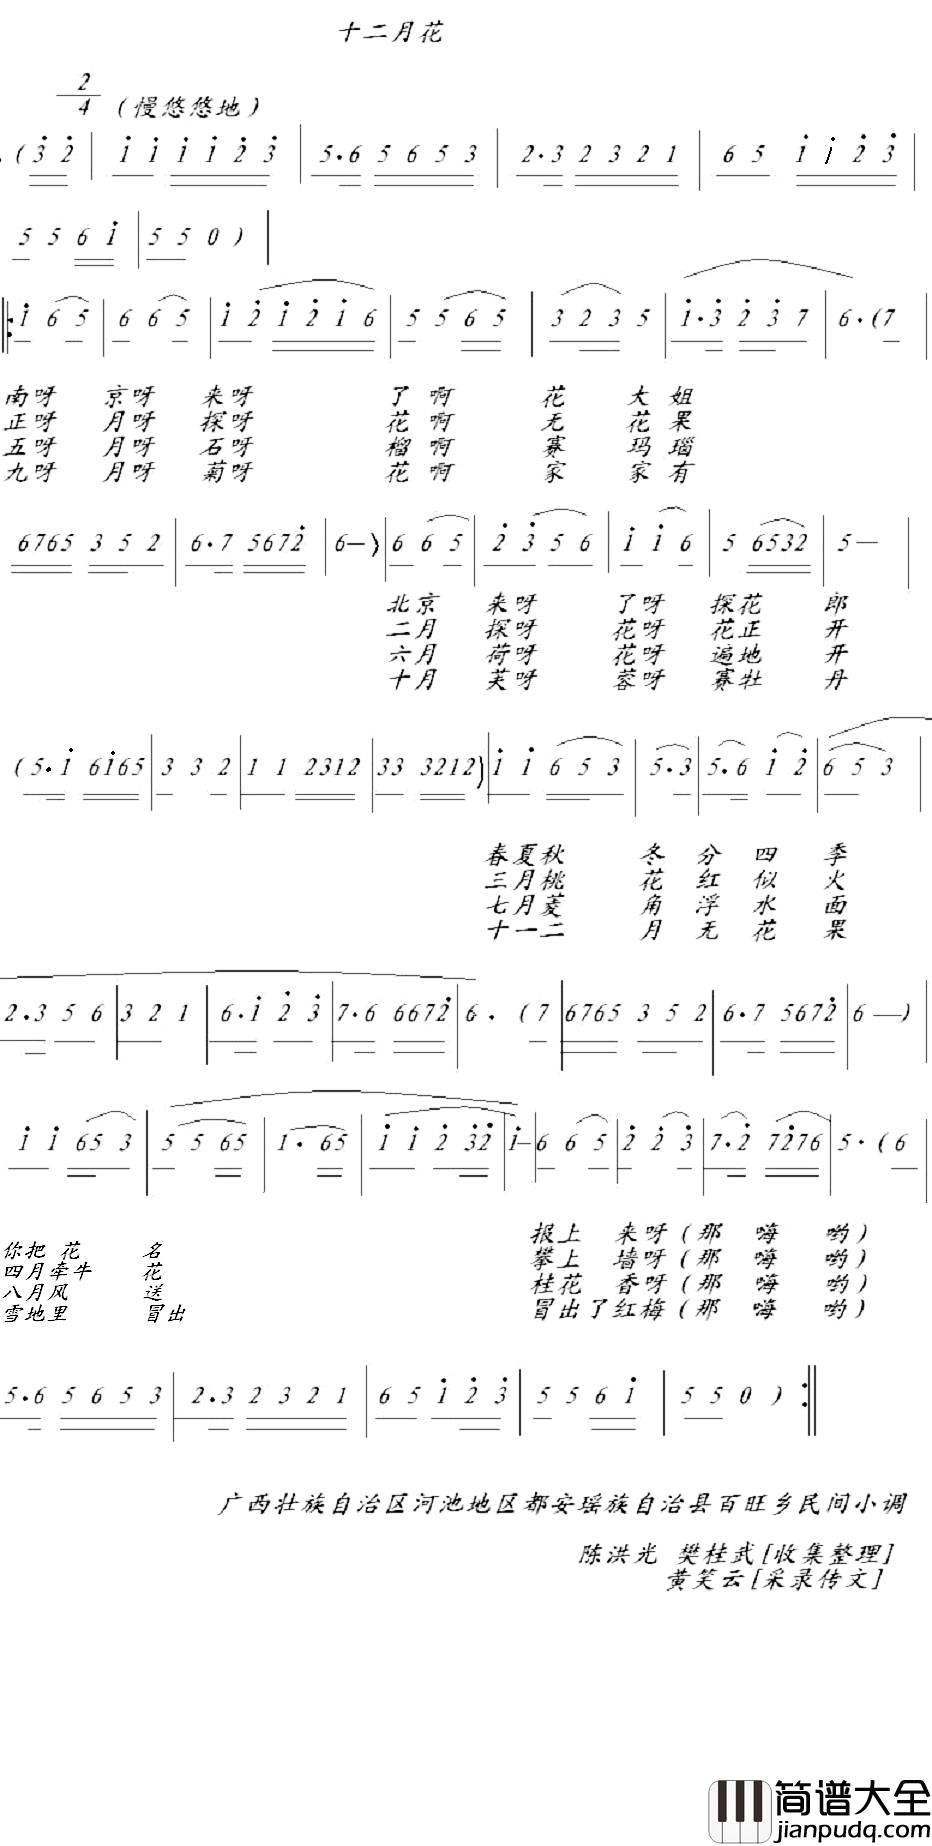 十二月花
2
4 (慢悠悠地)
. (3 2 | 1 1 1 1 2 3 | 5.6 5 6 5 3 | 2.3 2 3 2 1 | 6 5 1 i 2 3 |
5 5 6 1 | 5 5 0 ) |
‖: 1 6 5 | 6 6 5 | 1 2 1 2 1 6 | 5 5 6 5 | 3 2 3 5 | 1.3 2 3 7 | 6.(7 |
南呀 京呀 来呀 了啊 花 大姐
正呀 月呀 探呀 花啊 无 花果
五呀 月呀 石呀 榴啊 赛 玛瑙
九呀 月呀 菊呀 花啊 家 家有
6765 3 5 2 | 6.7 5672 | 6—) | 6 6 5 | 2 3 5 6 | 1 1 6 | 5 6532 | 5— |
北京 来呀 了呀 探花 郎
二月 探呀 花呀 花正 开
六月 荷呀 花呀 遍地 开
十月 芙呀 蓉呀 赛牡 丹
(5.1 6165 | 3 3 2 | 1 1 2312 | 33 3212) | 1 1 6 5 3 | 5.3 | 5.6 1 2 | 6 5 3 |
春夏秋 冬 分 四 季
三月桃 花 红 似 火
七月菱 角 浮 水 面
十一二 月 无 花 果
2.3 5 6 | 3 2 1 | 6.1 2 3 | 7.6 6672 | 6. (7 | 6765 3 5 2 | 6.7 5672 | 6—) |
1 1 65 3 | 5 5 65 | 1. 65 | 1 1 2 32 | 1— | 6 6 5 | 2 2 3 | 7.2 7276 | 5. (6 |
你把 花 名 报上 来呀 (那 嗨 哟)
四月牵牛 花 攀上 墙呀 (那 嗨 哟)
八月风 送 桂花 香呀 (那 嗨 哟)
雪地里 冒出 冒出了红梅 (那 嗨 哟)
5.6 5 6 5 3 | 2.3 2 3 2 1 | 6 5 1 2 3 | 5 5 6 1 | 5 5 0 ) :‖
广西壮族自治区河池地区都安瑶族自治县百旺乡民间小调
陈洪光 樊桂武[收集整理]
黄笑云[采录传文]
简谱大全
jianpudq.com